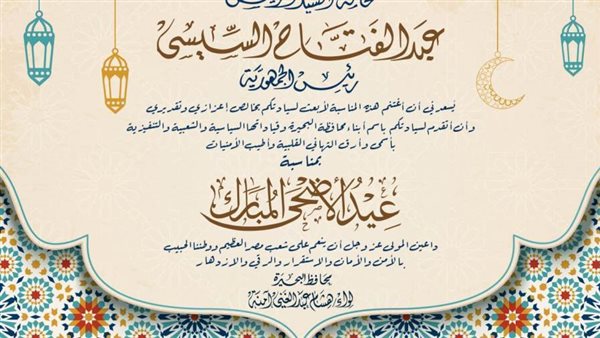 عبد الفتاح السيسي
رئيس الجمهورية
يُسعدني أن أغتنم هذه المناسبة لأبعث لسيادتكم بخالص إعزازي وتقديري
وأن أتقدم لسيادتكم باسم أبناء محافظة البحيرة وقياداتها السياسية والشعبية والتنفيذية
بأسمى وأرق التهاني القلبية وأطيب الأمنيات
بمناسبة
عيد الأضحى المبارك
داعين المولى عز وجل أن ينعم على شعب مصر العظيم ووطننا الحبيب
بالأمن والأمان والاستقرار والرقي والازدهار
محافظ البحيرة
لواء/ هشام عبد الغني آمنة